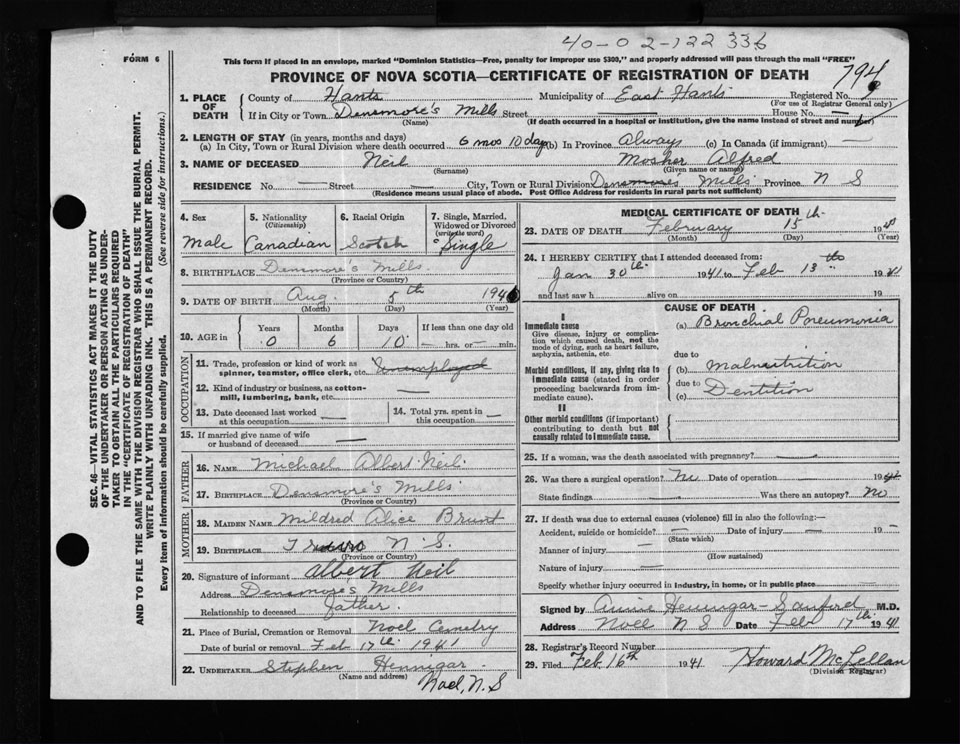 40-02-122 336
FORM 6
This form if placed in an envelope, marked "Dominion Statistics—Free, penalty for improper use $300," and properly addressed will pass through the mail "FREE"
794
PROVINCE OF NOVA SCOTIA—CERTIFICATE OF REGISTRATION OF DEATH
1. PLACE OF DEATH County of Hants Municipality of East Hants Registered No.
(For use of Registrar General only)
If in City or Town Densmore's Mills Street House No. —
(Name) (If death occurred in a hospital or institution, give the name instead of street and number)
2. LENGTH OF STAY (in years, months and days)
(a) In City, Town or Rural Division where death occurred 6 mos 10 days (b) In Province Always (c) In Canada (if immigrant) —
3. NAME OF DECEASED Neil Mosher Alfred
(Surname) (Given name or names)
RESIDENCE No. — Street — City, Town or Rural Division Densmore's Mills Province N S
(Residence means usual place of abode. Post Office Address for residents in rural parts not sufficient)
4. Sex 5. Nationality 6. Racial Origin 7. Single, Married,
(Citizenship) Widowed or Divorced
(write the word)
Male Canadian Scotch Single
8. BIRTHPLACE Densmore's Mills
(Province or Country)
9. DATE OF BIRTH Aug. 5th 194
(Month) (Day) (Year)
10. AGE in Years Months Days If less than one day old
0 6 10 — hrs. or — min.
OCCUPATION
11. Trade, profession or kind of work as
spinner, teamster, office clerk, etc. Unemployed
12. Kind of industry or business, as cotton-
mill, lumbering, bank, etc. —
13. Date deceased last worked
at this occupation —
14. Total yrs. spent in
this occupation —
15. If married give name of wife
or husband of deceased —
FATHER
16. NAME Michael Albert Neil
17. BIRTHPLACE Densmore's Mills
(Province or Country)
MOTHER
18. MAIDEN NAME Mildred Alice Brunt
19. BIRTHPLACE Truro N. S.
(Province or Country)
20. Signature of informant Albert Neil
Address Densmore's Mills
Relationship to deceased father.
21. Place of Burial, Cremation or Removal Noel Cemetry
Date of burial or removal Feb 17th 1941
22. UNDERTAKER Stephen Hennigar
(Name and address)
Noel, N. S
MEDICAL CERTIFICATE OF DEATH
23. DATE OF DEATH February 15th 19
(Month) (Day) (Year)
24. I HEREBY CERTIFY that I attended deceased from:
Jan 30th 1941 to Feb 13th 1941
and last saw h alive on 19
CAUSE OF DEATH
I
Immediate cause
Give disease, injury or complica-
tion which caused death, not the
mode of dying, such as heart failure,
asphyxia, asthenia, etc.
(a) Bronchial Pneumonia
due to
Morbid conditions, if any, giving rise to
immediate cause (stated in order
proceeding backwards from im-
mediate cause).
(b) Malnutrition
due to
(c) Dentition
II
Other morbid conditions (if important)
contributing to death but not
causally related to immediate cause.
25. If a woman, was the death associated with pregnancy? —
26. Was there a surgical operation? No Date of operation — 1941
State findings — Was there an autopsy? No
27. If death was due to external causes (violence) fill in also the following:—
Accident, suicide or homicide? — Date of injury — 19 —
(State which)
Manner of injury —
(How sustained)
Nature of injury —
Specify whether injury occurred in industry, in home, or in public place —
Signed by Annie Hennigar-Sanford M.D.
Address Noel N S Date Feb 17th 1941
28. Registrar's Record Number
29. Filed Feb 16th 1941 Howard McLellan
(Division Registrar)
SEC. 46—VITAL STATISTICS ACT MAKES IT THE DUTY
OF THE UNDERTAKER OR PERSON ACTING AS UNDER-
TAKER TO OBTAIN ALL THE PARTICULARS REQUIRED
IN THE "CERTIFICATE OF REGISTRATION OF DEATH"
AND TO FILE THE SAME WITH THE DIVISION REGISTRAR WHO SHALL ISSUE THE BURIAL PERMIT.
WRITE PLAINLY WITH UNFADING INK. THIS IS A PERMANENT RECORD.
Every item of information should be carefully supplied. (See reverse side for instructions.)